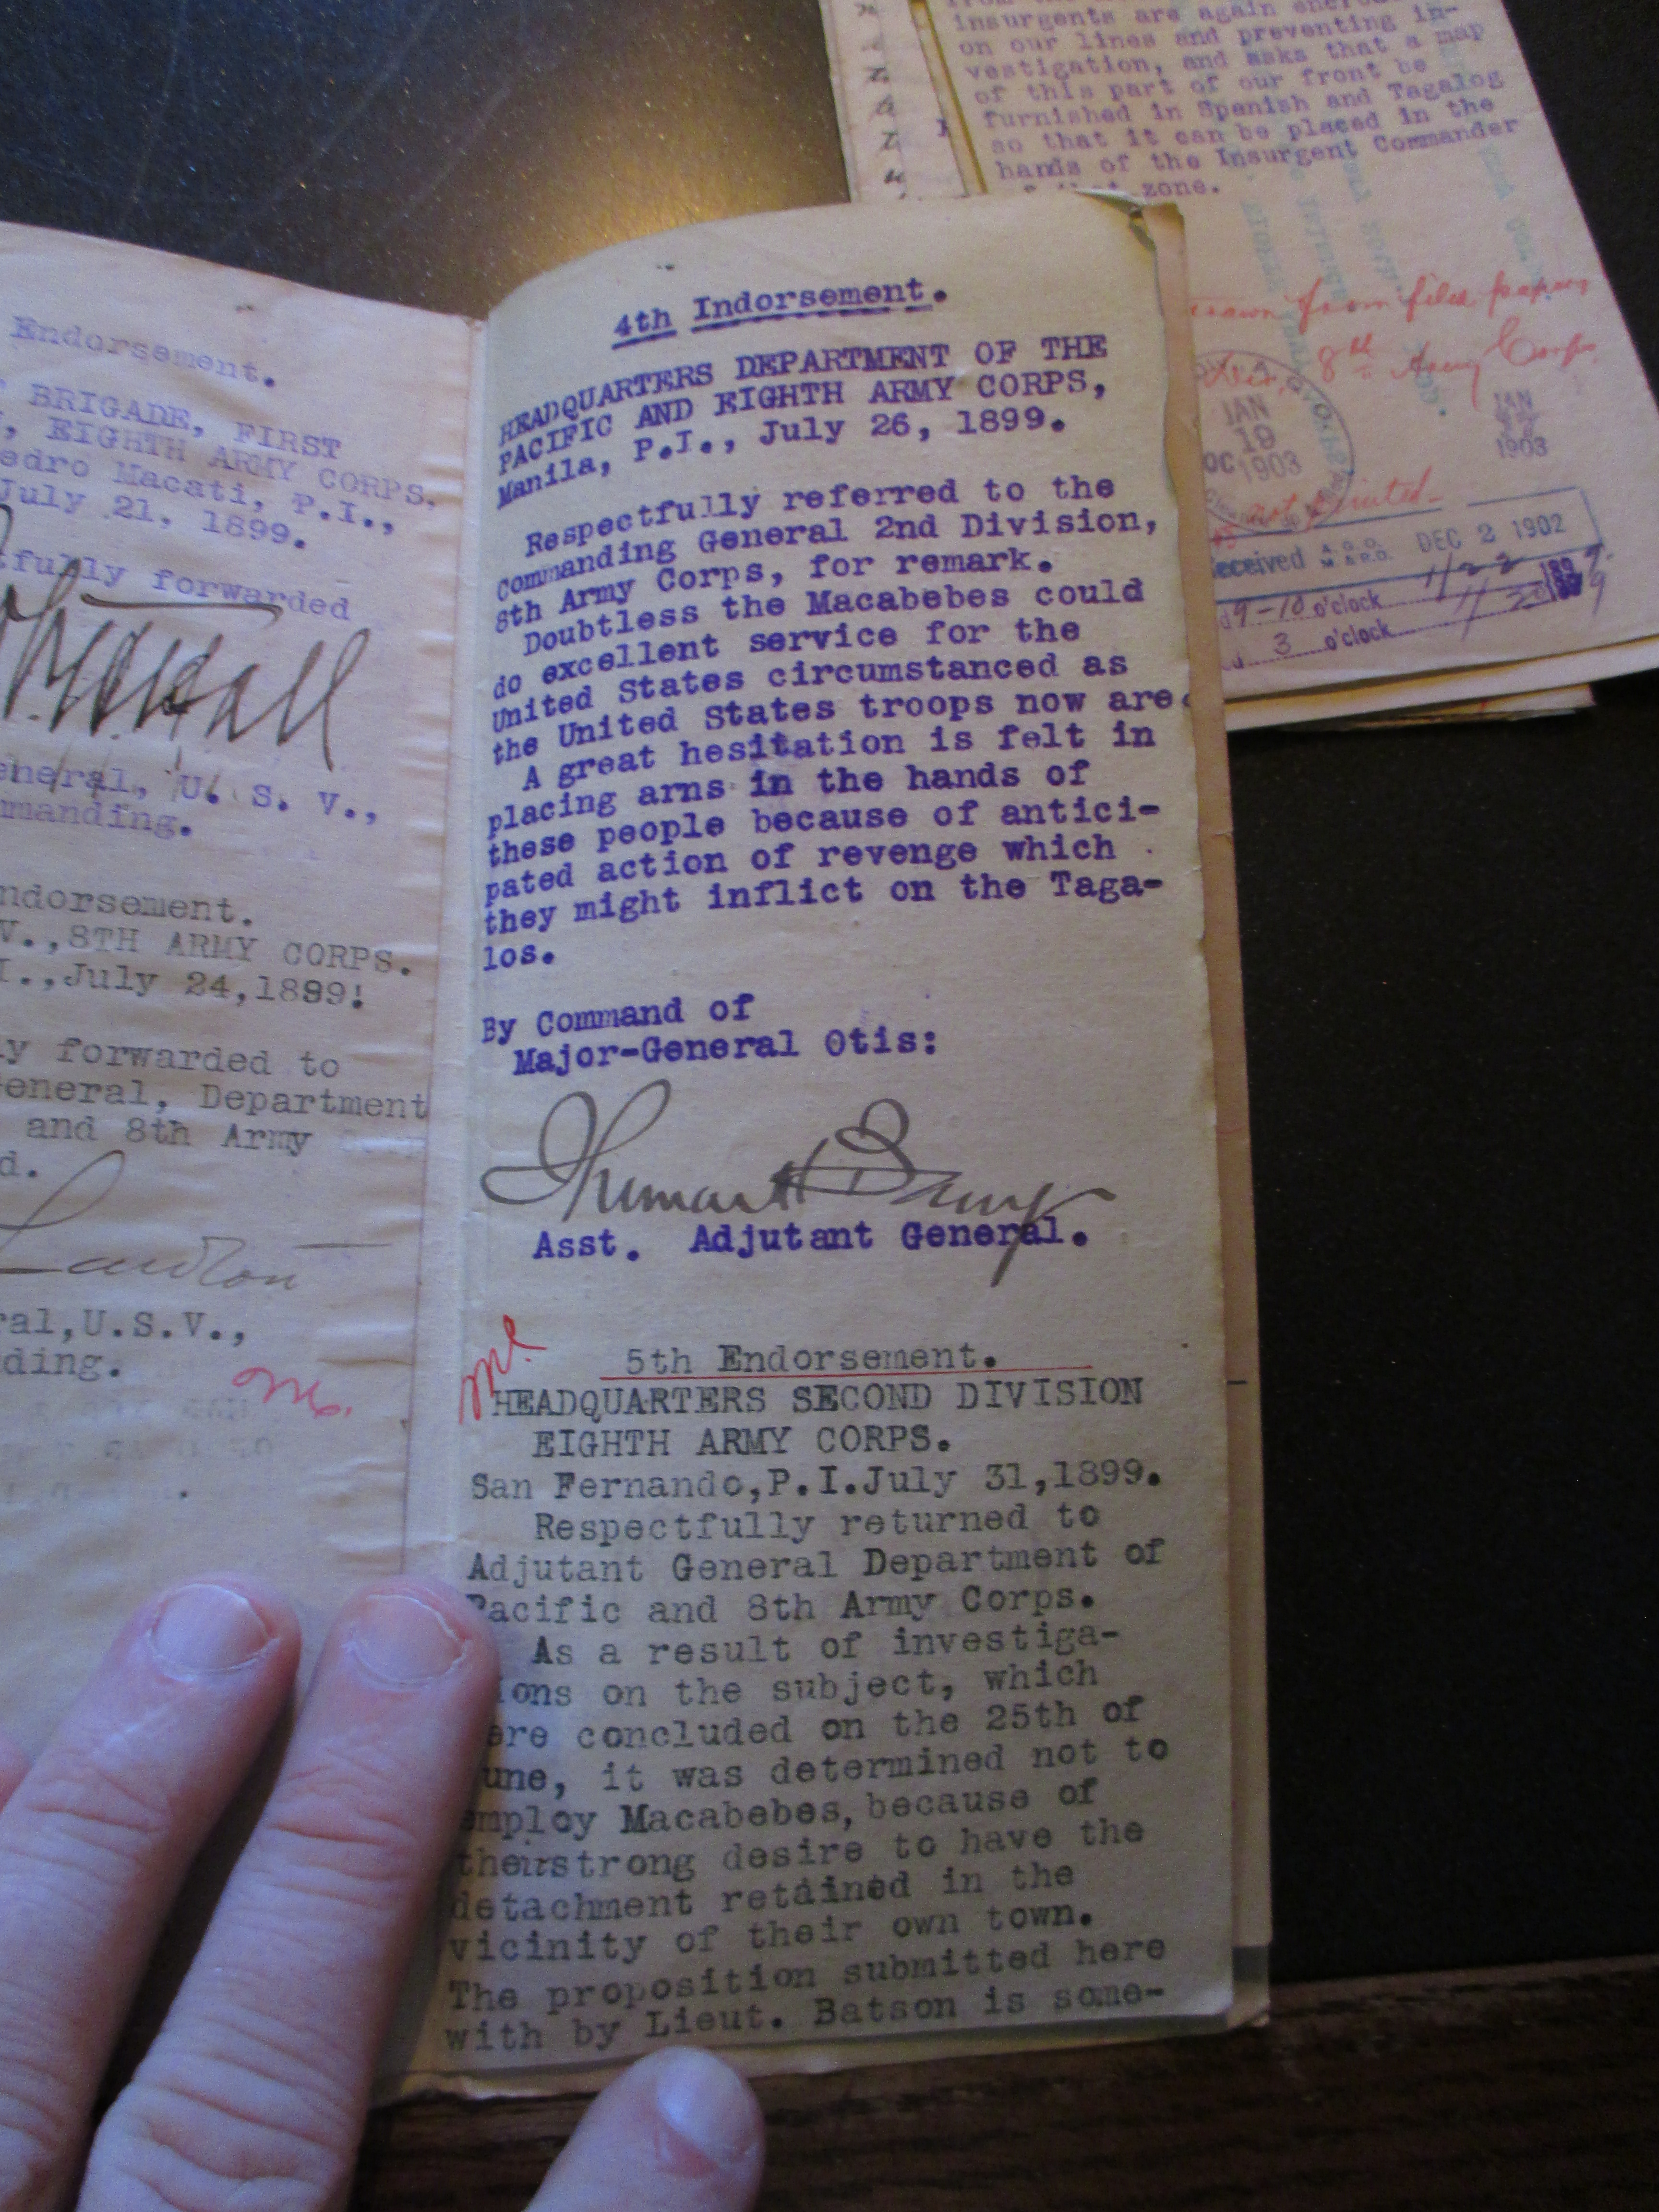 insurgents are again
on our lines and preventing in-
vestigation, and asks that a map
of this part of our front be
furnished in Spanish and Tagalog
so that it can be placed in the
hands of the Insurgent Commander
zone.
from files papers
8th Army Corps
JAN
19
1903
JAN
1903
not printed
Received DEC 2 1902
9-10 o'clock
3 o'clock
Endorsement.
BRIGADE, FIRST
EIGHTH ARMY CORPS.
edro Macati, P.I.,
July 21, 1899.
tfully forwarded
eneral, U. S. V.,
manding.
ndorsement.
V.,8TH ARMY CORPS.
I.,July 24,1899!
y forwarded to
eneral, Department
and 8th Army
d.
Lawton
ral,U.S.V.,
ding.
4th Indorsement.
HEADQUARTERS DEPARTMENT OF THE
PACIFIC AND EIGHTH ARMY CORPS,
Manila, P.I., July 26, 1899.
Respectfully referred to the
Commanding General 2nd Division,
8th Army Corps, for remark.
Doubtless the Macabebes could
do excellent service for the
United States circumstanced as
the United States troops now are.
A great hesitation is felt in
placing arns in the hands of
these people because of antici-
pated action of revenge which
they might inflict on the Taga-
los.
By Command of
Major-General Otis:
Thomas H Barry
Asst. Adjutant General.
5th Endorsement.
HEADQUARTERS SECOND DIVISION
EIGHTH ARMY CORPS.
San Fernando,P.I.July 31,1899.
Respectfully returned to
Adjutant General Department of
Pacific and 8th Army Corps.
As a result of investiga-
ions on the subject, which
ere concluded on the 25th of
une, it was determined not to
employ Macabebes, because of
their strong desire to have the
detachment retained in the
vicinity of their own town.
The proposition submitted here
with by Lieut. Batson is some-